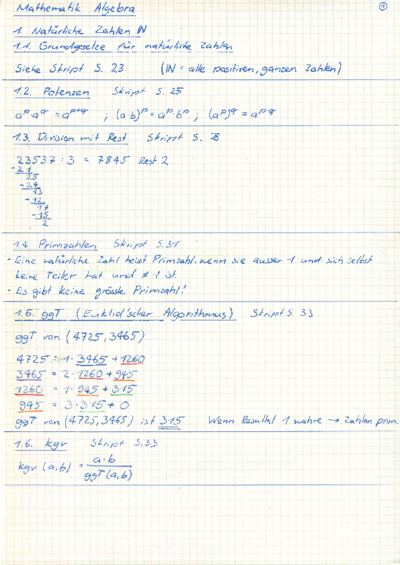 Mathematik Algebra
①
1. Natürliche Zahlen ℕ
1.1. Grundgesetze für natürliche Zahlen
Siehe Skript S. 23 (ℕ = alle positiven, ganzen Zahlen)
1.2. Potenzen Skript S. 25
aᵖ·a^q = a^(p+q) ; (a·b)ᵖ = aᵖ·bᵖ ; (aᵖ)^q = a^(p·q)
1.3. Division mit Rest Skript S.
23537 : 3 = 7845 Rest 2
-21
25
-24
13
-12
17
-15
2
1.4. Primzahlen Skript S.31
- Eine natürliche Zahl heisst Primzahl, wenn sie ausser 1 und sich selbst
keine Teiler hat und ≠ 1 ist.
- Es gibt keine grösste Primzahl!
1.5. ggT (Euklid'scher Algorithmus) Skript S. 33
ggT von (4725, 3465)
4725 = 1 · 3465 + 1260
3465 = 2 · 1260 + 945
1260 = 1 · 945 + 315
945 = 3 · 315 + 0
ggT von (4725, 3465) ist 315 Wenn Resultat 1 wäre → Zahlen prim.
1.6. kgV Skript S.33
kgV (a,b) = a·b / ggT (a,b)